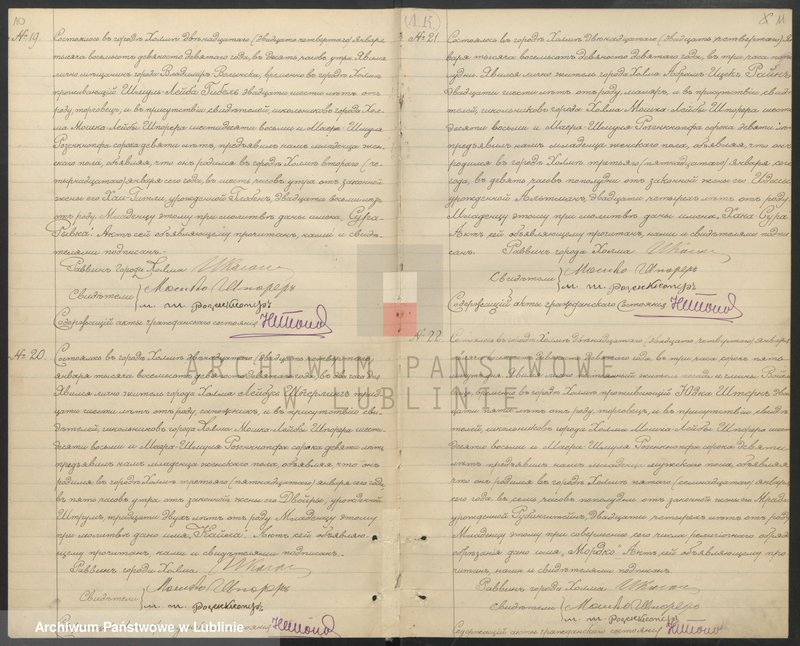 10
(А.К.)
8 11
№ 19.
Состоялось въ городѣ Холмѣ двѣнадцатаго (двадцать четвертаго) Января
тысяча восемьсотъ девяносто девятаго года, въ десять часовъ утра. Явился
лично мѣщанинъ города Владимiръ Волынска, временно въ городѣ Холмѣ
проживающiй Шмуль-Лейба двадцати шести лѣтъ отъ
роду, торговецъ, и въ присутствiи свидѣтелей, школьниковъ города Хол-
ма Мошка-Лейбы Шпорера шестидесяти восьми и Меера-Шмуля
Розенкнопфа сорока девяти лѣтъ, предъявилъ намъ младенца жен-
скаго пола, объявляя, что онъ родился въ городѣ Холмѣ второго (че-
тырнадцатаго) января сего года, въ шесть часовъ утра отъ законной
жены его Хаи-Гитли, урожденной двадцати восьми лѣтъ
отъ роду. Младенцу этому при молитвѣ даны имена, „Сура-
Рывка“. Актъ сей объявляющему прочитанъ, нами и свидѣ-
телями подписанъ.
Раввинъ города Холма
Свидѣтели Мошко Шпореръ
М. Ш. Розенкнопфъ
Содержащiй акты гражданскаго состоянiя
№ 20.
Состоялось въ городѣ Холмѣ двѣнадцатаго (двадцать четвертаго)
января тысяча восемьсотъ девяносто девятаго года, въ часовъ
Явился лично житель города Холма Лейбусь трид-
цати шести лѣтъ отъ роду, сапожникъ, и въ присутствiи сви-
дѣтелей, школьниковъ города Холма Мошка-Лейбы Шпорера шести-
десяти восьми и Меера-Шмуля Розенкнопфа сорока девяти лѣтъ
предъявилъ намъ младенца женскаго пола, объявляя, что онъ
родился въ городѣ Холмѣ третьяго (пятнадцатаго) января сего года
въ пять часовъ утра отъ законной жены его Двойры, урожденной
Штрумъ, тридцати двухъ лѣтъ отъ роду. Младенцу этому
при молитвѣ дано имя, „Хайка“. Актъ сей объявляю-
щему прочитанъ, нами и свидѣтелями подписанъ.
Раввинъ города Холма
Свидѣтели Мошко Шпореръ
М. Ш. Розенкнопфъ
Содержащiй акты гражданскаго состоянiя
№ 21.
Состоялось въ городѣ Холмѣ двѣнадцатаго (двадцать четвертаго) Ян-
варя тысяча восемьсотъ девяносто девятаго года, въ три часа попо-
лудни. Явился лично житель города Холма Абрамъ-Ицекъ
двадцати шести лѣтъ отъ роду, маляръ, и въ присутствiи свидѣ-
телей, школьниковъ города Холма Мошка-Лейбы Шпорера шести-
десяти восьми и Меера-Шмуля Розенкнопфа сорока девяти лѣтъ
предъявилъ намъ младенца женскаго пола, объявляя, что онъ
родился въ городѣ Холмѣ третьяго (пятнадцатаго) января сего
года, въ девять часовъ пополудни отъ законной жены его Идесы
урожденной Альтманъ, двадцати четырехъ лѣтъ отъ роду.
Младенцу этому при молитвѣ даны имена, „Хана Сура“
Актъ сей объявляющему прочитанъ, нами и свидѣтелями подпи-
санъ. Раввинъ города Холма
Свидѣтели Мошко Шпореръ
М. Ш. Розенкнопфъ
Содержащiй акты гражданскаго состоянiя
№ 22.
Состоялось въ городѣ Холмѣ двѣнадцатаго (двадцать четвертаго) января
тысяча восемьсотъ девяносто девятаго года, въ три часа
въ городѣ Холмѣ проживающiй Юдка Штернъ двад-
цати лѣтъ отъ роду, торговецъ, и въ присутствiи свидѣ-
телей, школьниковъ города Холма Мошка-Лейбы Шпорера шести-
десяти восьми и Меера-Шмуля Розенкнопфа сорока девяти
лѣтъ предъявилъ намъ младенца мужскаго пола, объявляя
что онъ родился въ городѣ Холмѣ пятаго (семнадцатаго) января
сего года, въ семь часовъ пополудни отъ законной жены его
урожденной двадцати четырехъ лѣтъ отъ роду.
Младенцу этому при совершенiи сего числа религiознаго обряда
обрѣзанiя дано имя, „Мордко“. Актъ сей объявляющему про-
читанъ, нами и свидѣтелями подписанъ.
Раввинъ города Холма
Свидѣтели Мошко Шпореръ
М. Ш. Розенкнопфъ
Содержащiй акты гражданскаго состоянiя
ARCHIWUM PAŃSTWOWE
W LUBLINIE
Archiwum Państwowe w Lublinie